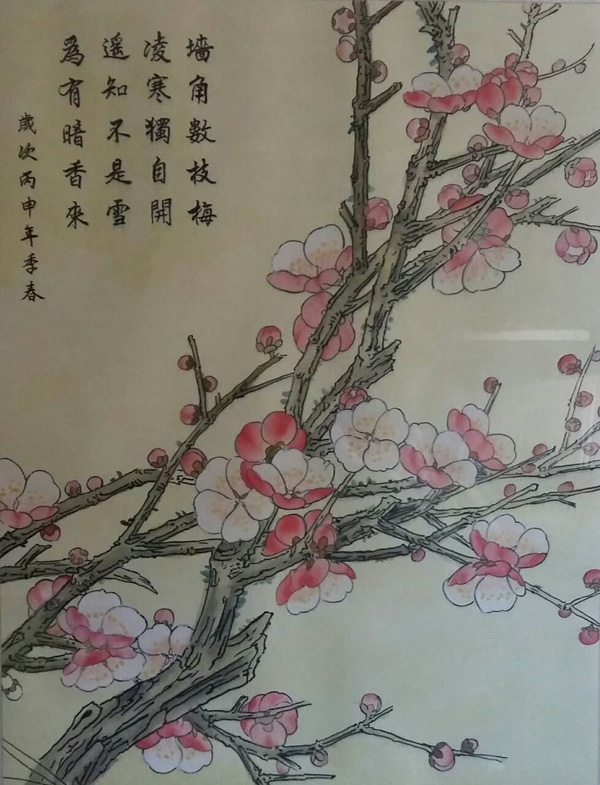 墙角数枝梅
凌寒獨自開
遥知不是雪
為有暗香來
歲次丙申年季春